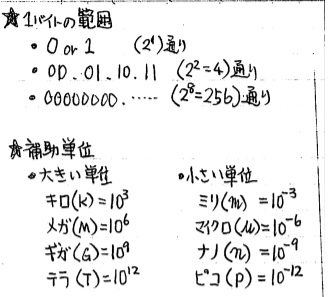 ☆1バイトの範囲
・0 or 1 (2¹)通り
・00.01.10.11 (2²=4)通り
・00000000.…… (2⁸=256)通り
☆補助単位
・大きい単位
キロ(k)=10³
メガ(M)=10⁶
ギガ(G)=10⁹
テラ(T)=10¹²
・小さい単位
ミリ(m)=10⁻³
マイクロ(μ)=10⁻⁶
ナノ(n)=10⁻⁹
ピコ(p)=10⁻¹²